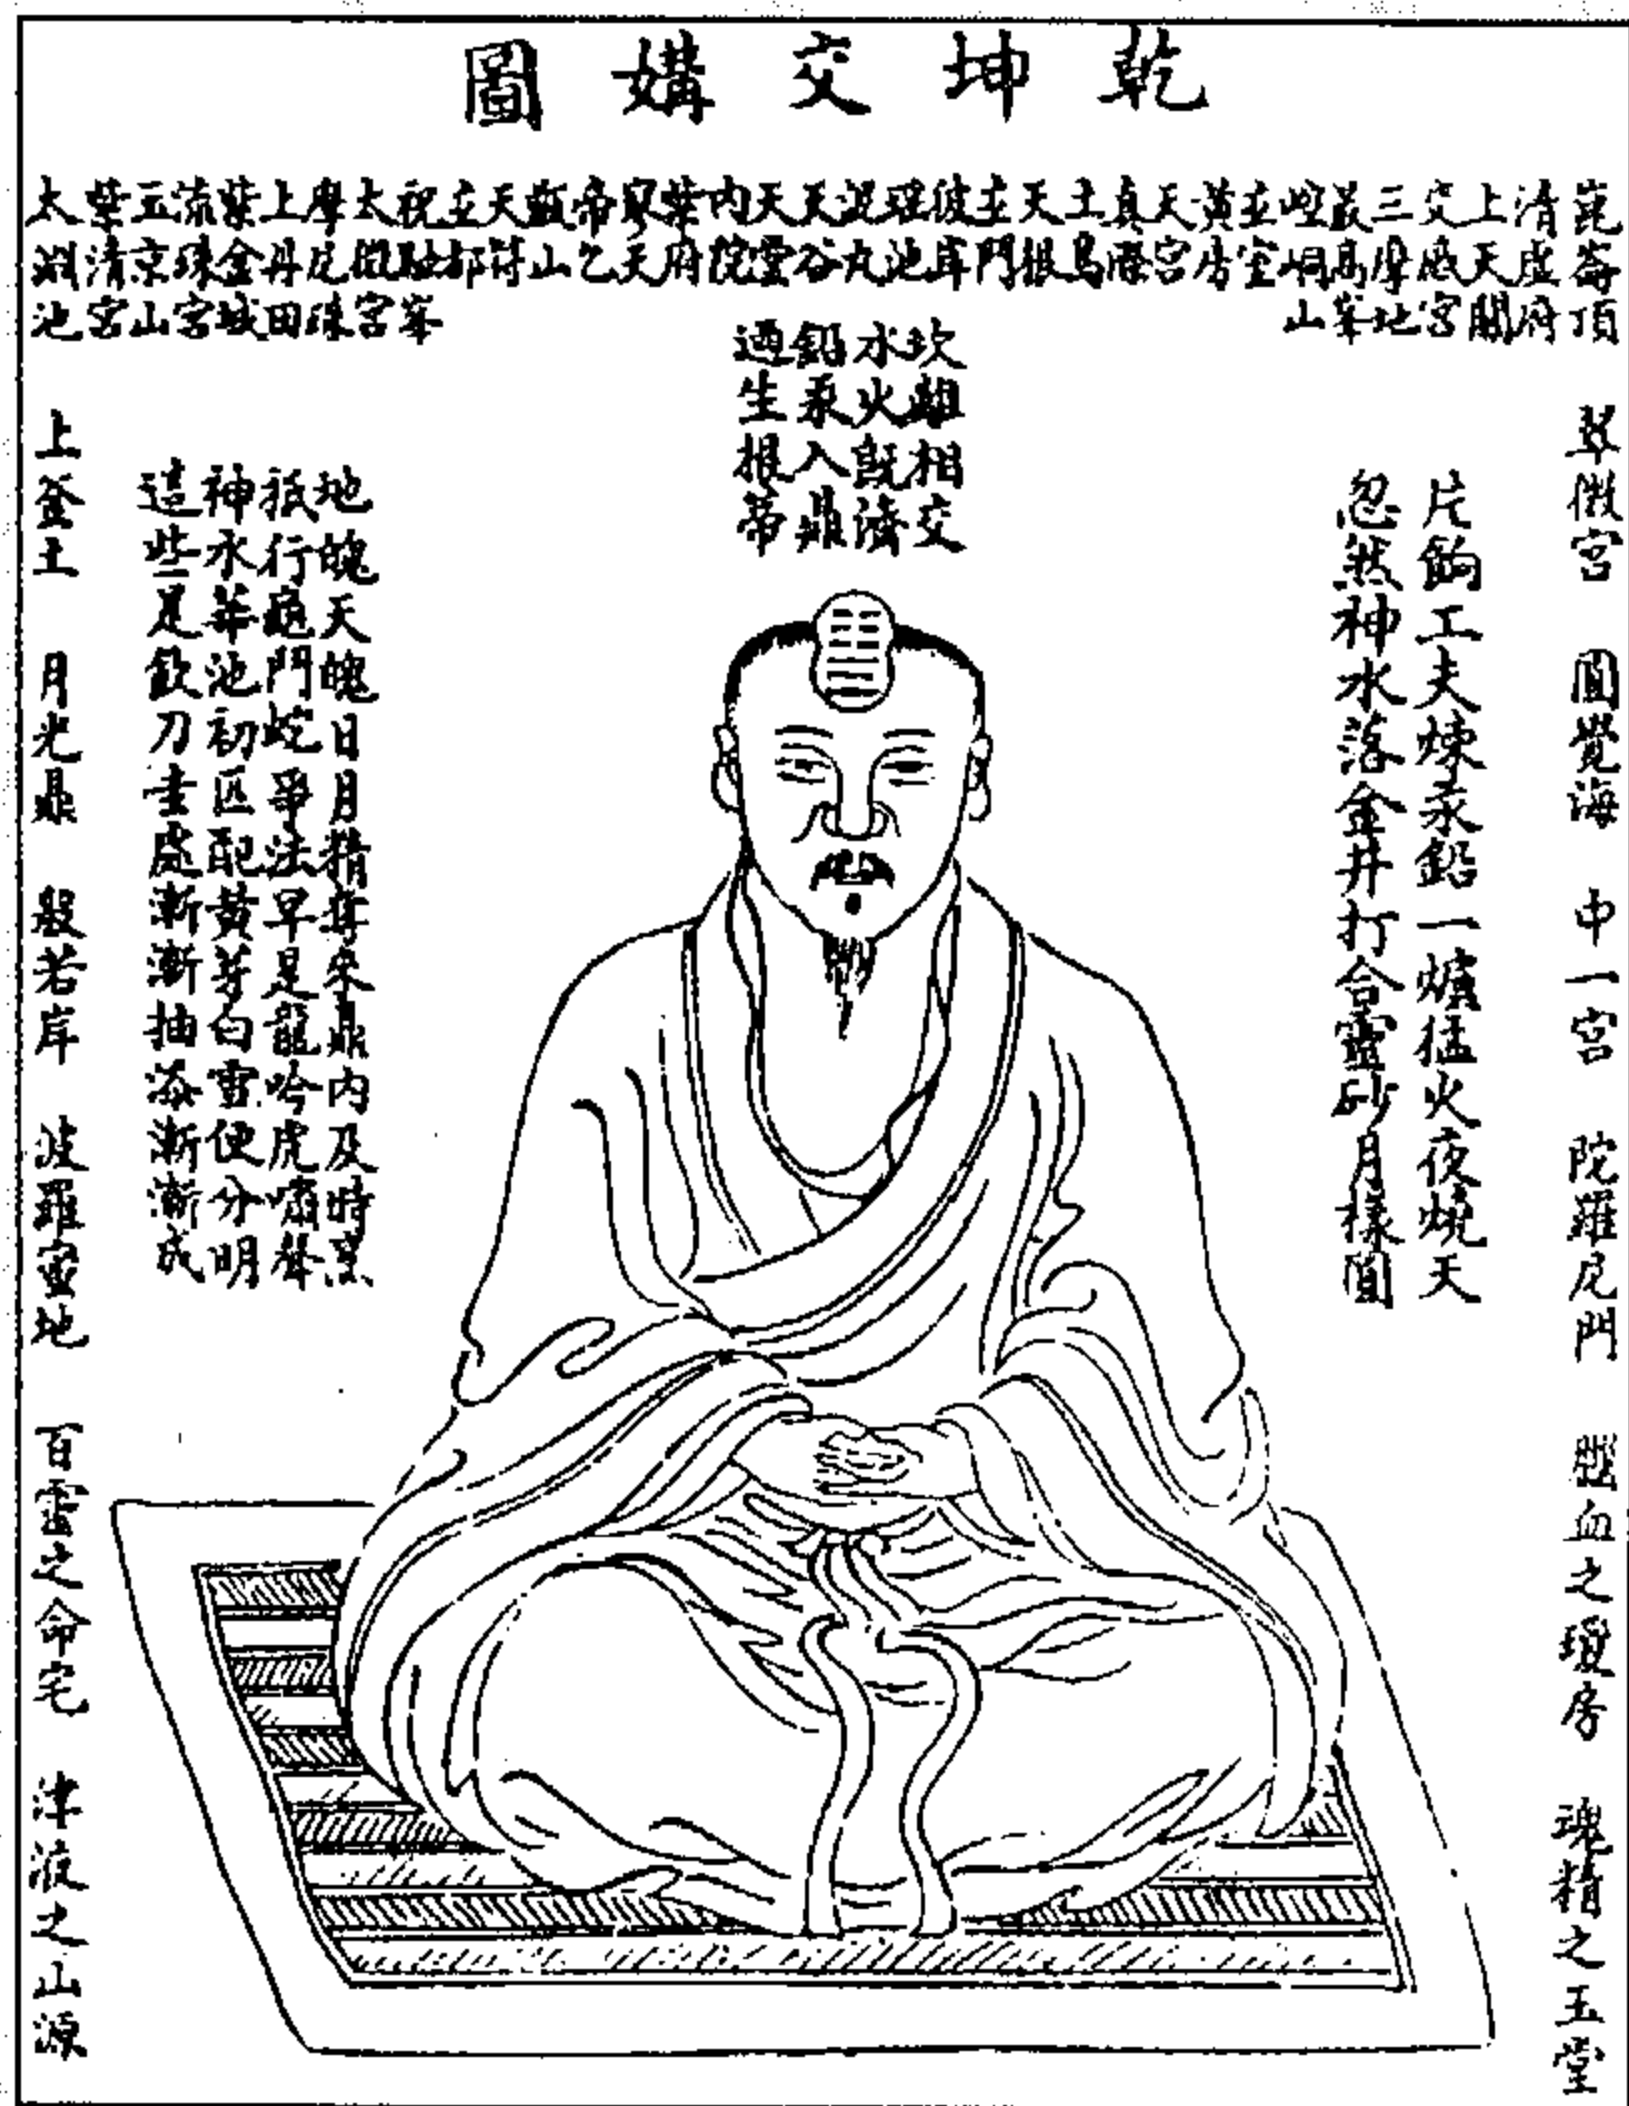 乾坤交媾圖
崑崙頂
清虛府
上天關
交感宮
三摩地
最高峯
崆峒山
玄室
黃房
天宮
真際
土鳥
天根
玄門
彼岸
瑤池
泥丸
天谷
天靈
內院
紫府
寥天
帝乙
甑山
天符
玄都
祝融峯
太微宮
摩尼珠
上丹田
紫金城
流珠宮
玉京山
紫清宮
太淵池
坎離相交
水火既濟
鉛汞入鼎
遒生根蒂
翠微宮 圓覺海 中一宮 陀羅尼門 之瓊房 魂精之玉堂
片餉工夫煉汞鉛一爐猛火夜燒天
忽然神水落金井打合靈砂月樣圓
地魄天魄日月精奪來鼎內及時烹
祇行龜鬥蛇爭法早是龍吟虎嘯聲
神水華池初匹配黃芽白雪便分明
這些是飲刀圭處漸漸抽添漸漸成
上釜土 月光鼎 般若岸 波羅蜜地 百靈之命宅 津液之山源